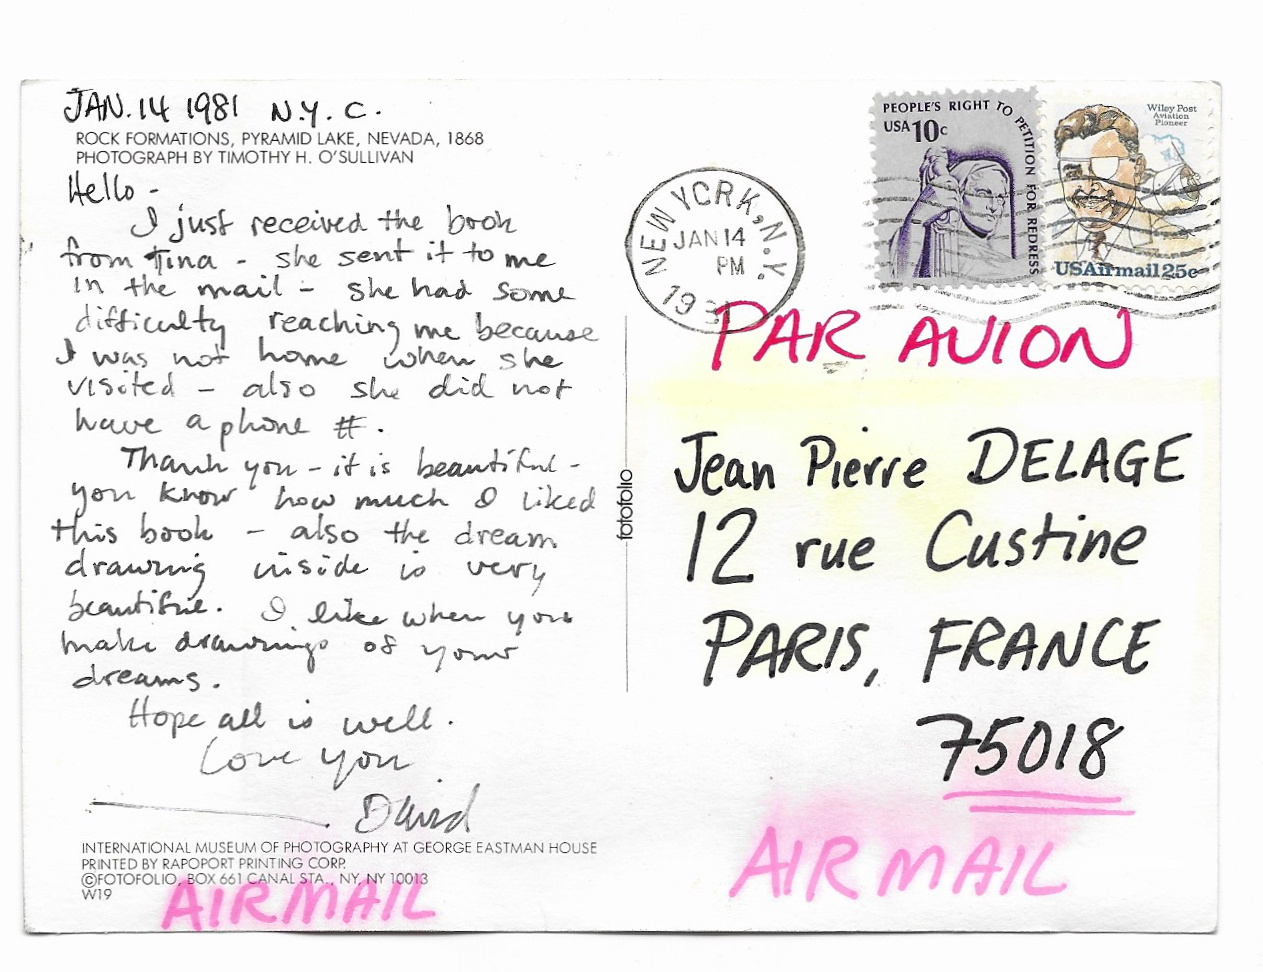 JAN. 14 1981 N.Y.C.
ROCK FORMATIONS, PYRAMID LAKE, NEVADA, 1868
PHOTOGRAPH BY TIMOTHY H. O'SULLIVAN
Hello -
I just received the book
from Tina - she sent it to me
in the mail - she had some
difficulty reaching me because
I was not home when she
visited - also she did not
have a phone #.
Thank you - it is beautiful -
you know how much I liked
this book - also the dream
drawing inside is very
beautiful. I like when you
make drawings of your
dreams.
Hope all is well.
Love you
David
INTERNATIONAL MUSEUM OF PHOTOGRAPHY AT GEORGE EASTMAN HOUSE
PRINTED BY RAPOPORT PRINTING CORP.
©FOTOFOLIO, BOX 661 CANAL STA., NY, NY 10013
W19
AIRMAIL
fotofolio
NEW YORK, N.Y.
JAN 14
PM
PEOPLE'S RIGHT TO PETITION FOR REDRESS
USA 10c
Wiley Post
Aviation
Pioneer
USAirmail 25c
PAR AVION
Jean Pierre DELAGE
12 rue Custine
PARIS, FRANCE
75018
AIRMAIL